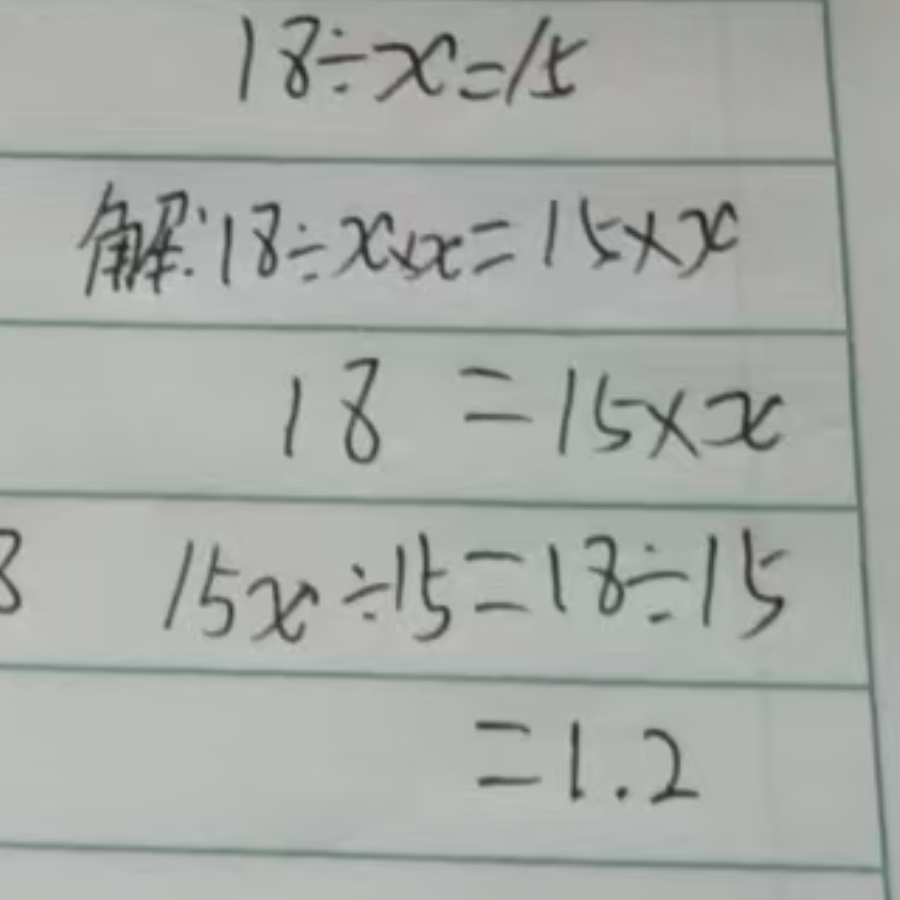 18÷x=15
解:18÷x×x=15×x
18=15×x
15x÷15=18÷15
=1.2